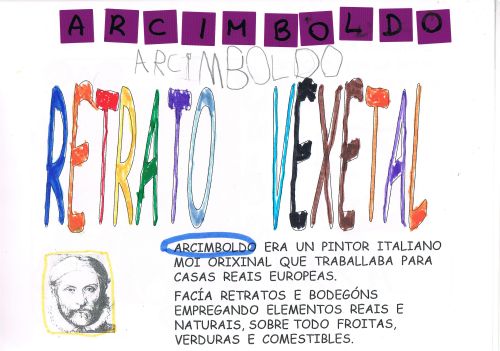 ARCIMBOLDO
ARCIMBOLDO
RETRATO VEXETAL
ARCIMBOLDO ERA UN PINTOR ITALIANO
MOI ORIXINAL QUE TRABALLABA PARA
CASAS REAIS EUROPEAS.
FACÍA RETRATOS E BODEGÓNS
EMPREGANDO ELEMENTOS REAIS E
NATURAIS, SOBRE TODO FROITAS,
VERDURAS E COMESTIBLES.